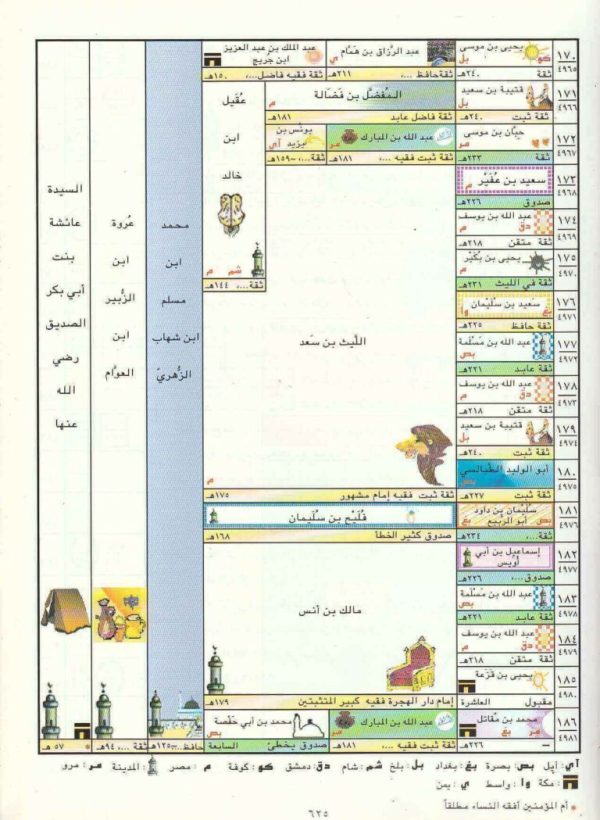 ١٧٠
٤٩٦٥
يحيى بن موسى
كو
بل
ثقة ٢٤٠هـ
عبد الرزاق بن همَّام
ي
ثقة حافظ ...، ٢١١هـ
عبد الملك بن عبد العزيز
ابن جريج
ثقة فقيه فاضل...، ١٥٠هـ
١٧١
٤٩٦٦
قتيبة بن سعيد
بل
ثقة ثبت ٢٤٠هـ
المُفضَّل بن فَضَالة
م
ثقة فاضل عابد ١٨١هـ
١٧٢
٤٩٦٧
حبَّان بن موسى
مر
ثقة ٢٣٣هـ
عبد الله بن المبارك
مر
ثقة ثبت فقيه ...، ١٨١هـ
يونُس بن
يزيد
آي
ثقة...، ١٥٩هـ
عقُيل
ابن
خالد
شم م
ثقة...، ١٤٤هـ
١٧٣
٤٩٦٨
سعيد بن عُفَيْر
م
صدوق ٢٢٦هـ
١٧٤
٤٩٦٩
عبد الله بن يوسف
دق م
ثقة متقن ٢١٨هـ
١٧٥
٤٩٧٠
يحيى بن بُكَيْر
م
ثقة في الليث ٢٣١هـ
١٧٦
٤٩٧١
سعيد بن سُليْمان
بغ وا
ثقة حافظ ٢٢٥هـ
١٧٧
٤٩٧٢
عبد الله بن مَسْلَمة
بص
ثقة عابد ٢٢١هـ
١٧٨
٤٩٧٣
عبد الله بن يوسف
دق م
ثقة متقن ٢١٨هـ
١٧٩
٤٩٧٤
قتيبة بن سعيد
بل
ثقة ثبت ٢٤٠هـ
١٨٠
٤٩٧٥
أبو الوليد الطَّيالسي
بص
ثقة ثبت ٢٢٧هـ
اللَّيث بن سَعد
م
ثقة ثبت فقيه إمام مشهور ١٧٥هـ
١٨١
٤٩٧٦
سليمان بن داود
أبو الربيع
بص بغ
ثقة...، ٢٣٤هـ
فُلَيْح بن سُليْمان
صدوق كثير الخطأ ١٦٨هـ
١٨٢
٤٩٧٧
إسماعيل بن أبي
أويس
صدوق...، ٢٢٦هـ
١٨٣
٤٩٧٨
عبد الله بن مَسْلَمة
بص
ثقة عابد ٢٢١هـ
١٨٤
٤٩٧٩
عبد الله بن يوسف
دق م
ثقة متقن ٢١٨هـ
١٨٥
٤٩٨٠
يحيى بن قزعة
مقبول العاشرة
مالك بن أنس
إمام دار الهجرة فقيه كبير المتثبتين ١٧٩هـ
١٨٦
٤٩٨١
محمد بن مُقاتل
مر بغ
ثقة ٢٢٦هـ
عبد الله بن المبارك
مر
ثقة ثبت فقيه ...، ١٨١هـ
محمد بن أبي حَفْصة
بص
صدوق يخطئ السابعة
محمد
ابن
مسلم
ابن شهاب
الزُّهريّ
حافظ...، ١٢٥هـ
عُروة
ابن
الزُّبير
ابن
العوَّام
ثقة...، ٩٤هـ
السيدة
عائشة
بنت
أبي بكر
الصديق
رضي
الله
عنها
* ٥٧ هـ
آي: أيل بص: بصرة بغ: بغداد بل: بلخ شم: شام دق: دمشق كو: كوفة م: مصر المدينة مر: مرو
مكة وا: واسط ي: يمن
* أم المؤمنين أفقه النساء مطلقاً
٦٢٥